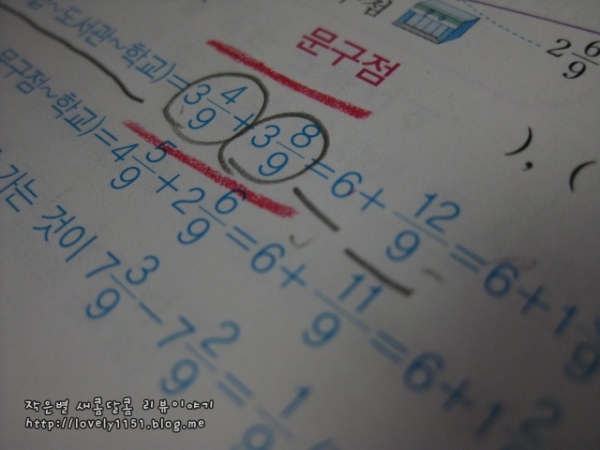 점
2 6/9
문구점
~도서관~학교)=3 4/9+3 8/9=6+12/9=6+1
문구점~학교)=4 5/9+2 6/9=6+11/9=6+1 2
가는 것이 7 3/9-7 2/9=1/9
), (
작은별 새콤달콤 리뷰이야기
http://lovely1151.blog.me